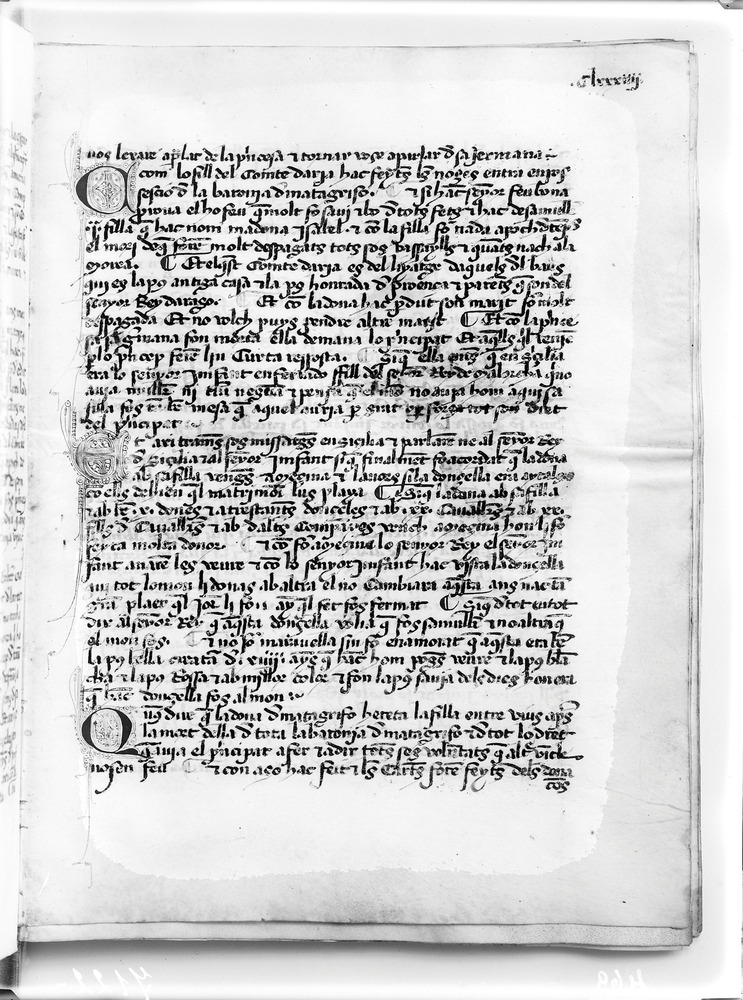 .Clxxxiiij.
uos leuare aplar de la pncesa ⁊ tornar vos e apurlar d sa jermana
Com lo fill del Comte darja hac feytes les noçes entra en pos
sessio d la baronia d matagrifo. ⁊ si hac senyor feu bona
proua el ho feu qͥ molt fo saui ⁊ bo d tots fets ⁊ hac de sa mull
jͣ filla q̄ hac nom madona jsabel. ⁊ co la filla fo nada apoch d temps
el mori deq̄ foren molt despagats tots sos vassaylls ⁊ quants nach a la
morea. Et aquest Comte daria es del linyatge daquels dl baus
qui es la pus antiga casa ⁊ la pus honrada d prohença ⁊ parets q son del
senyor Rey darago. Et co la dona hac perdut son marit fo molt
despagada Et no volch puys pendre altre marit Et co la prince
sa sa germana fon morta ella demana lo principat Et aqlls ql tenie
plo princep feren lin Curta resposta. Si q ella entes q en Sicilia
era lo senyor Infant en ferrando fill del senyor Rey de Malorcha q no
auia muller ni terra neguna ⁊ pensa q el mon no auja hom a qui sa
filla fos tan be mesa q̄ aquel auria p grat o per força tot son dret
del principat
Et axi trames sos missatges en Sicilia ⁊ parlaren ne al senyor Rey
d Sicilia ⁊ al senyor Infant si q finalment fo acordat q la dona
ab sa filla vengues a mecina ⁊ lauors si la donçella era aytal
co ells dehien ql matrimoni lus playa. Si q la dona ab sa filla
⁊ ab be .x. dones ⁊ atrestantes donçeles ⁊ ab .xx. Cauallers ⁊ ab .xx.
fills d Cauallers ⁊ ab daltres Companyes vench a mecina hon li fo
feyta molta donor. ⁊ co fo a mecina lo senyor Rey el senyor In
fant anaren les veure ⁊ co lo senyor infant hac vista la donçella
qui tot lo mon li donas ab altra el no Cambiara aqsta ans nac tan
gran plaer ql jorn li fon an ql fet fos fermat Si q d tot en tot
dix al senyor Rey q aqsta donçella volia q fos sa muller ⁊ no altra q
el mon fos. ⁊ no fo marauella sin fo enamorat q aqsta era be
la pus bella creatura d .xiiij. anys q hac hom pogues veure ⁊ la pus blan
cha ⁊ la pus Rossa ⁊ ab millor color ⁊ fon la pus sauja dels dies hon era
q hac donçella fos al mon
Queus dire q la dona d matagrifo hereta la filla entre vius apres
la mort della d tota la baronia d matagrifo ⁊ d tot lo dret
q auia el principat a fer ⁊ a dir totes ses voluntats q alt vincle
no si en feu ⁊ con aço hac feit ⁊ les Cartes foren feytes dels dona
cos